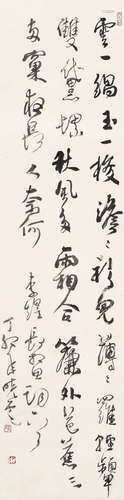 雲一緺玉一梭澹〻衫兒薄〻羅輕顰
雙黛螺秋風多雨相合簾外芭蕉三
兩窠夜長人奈何 李煜長相思一詞
丁卯年